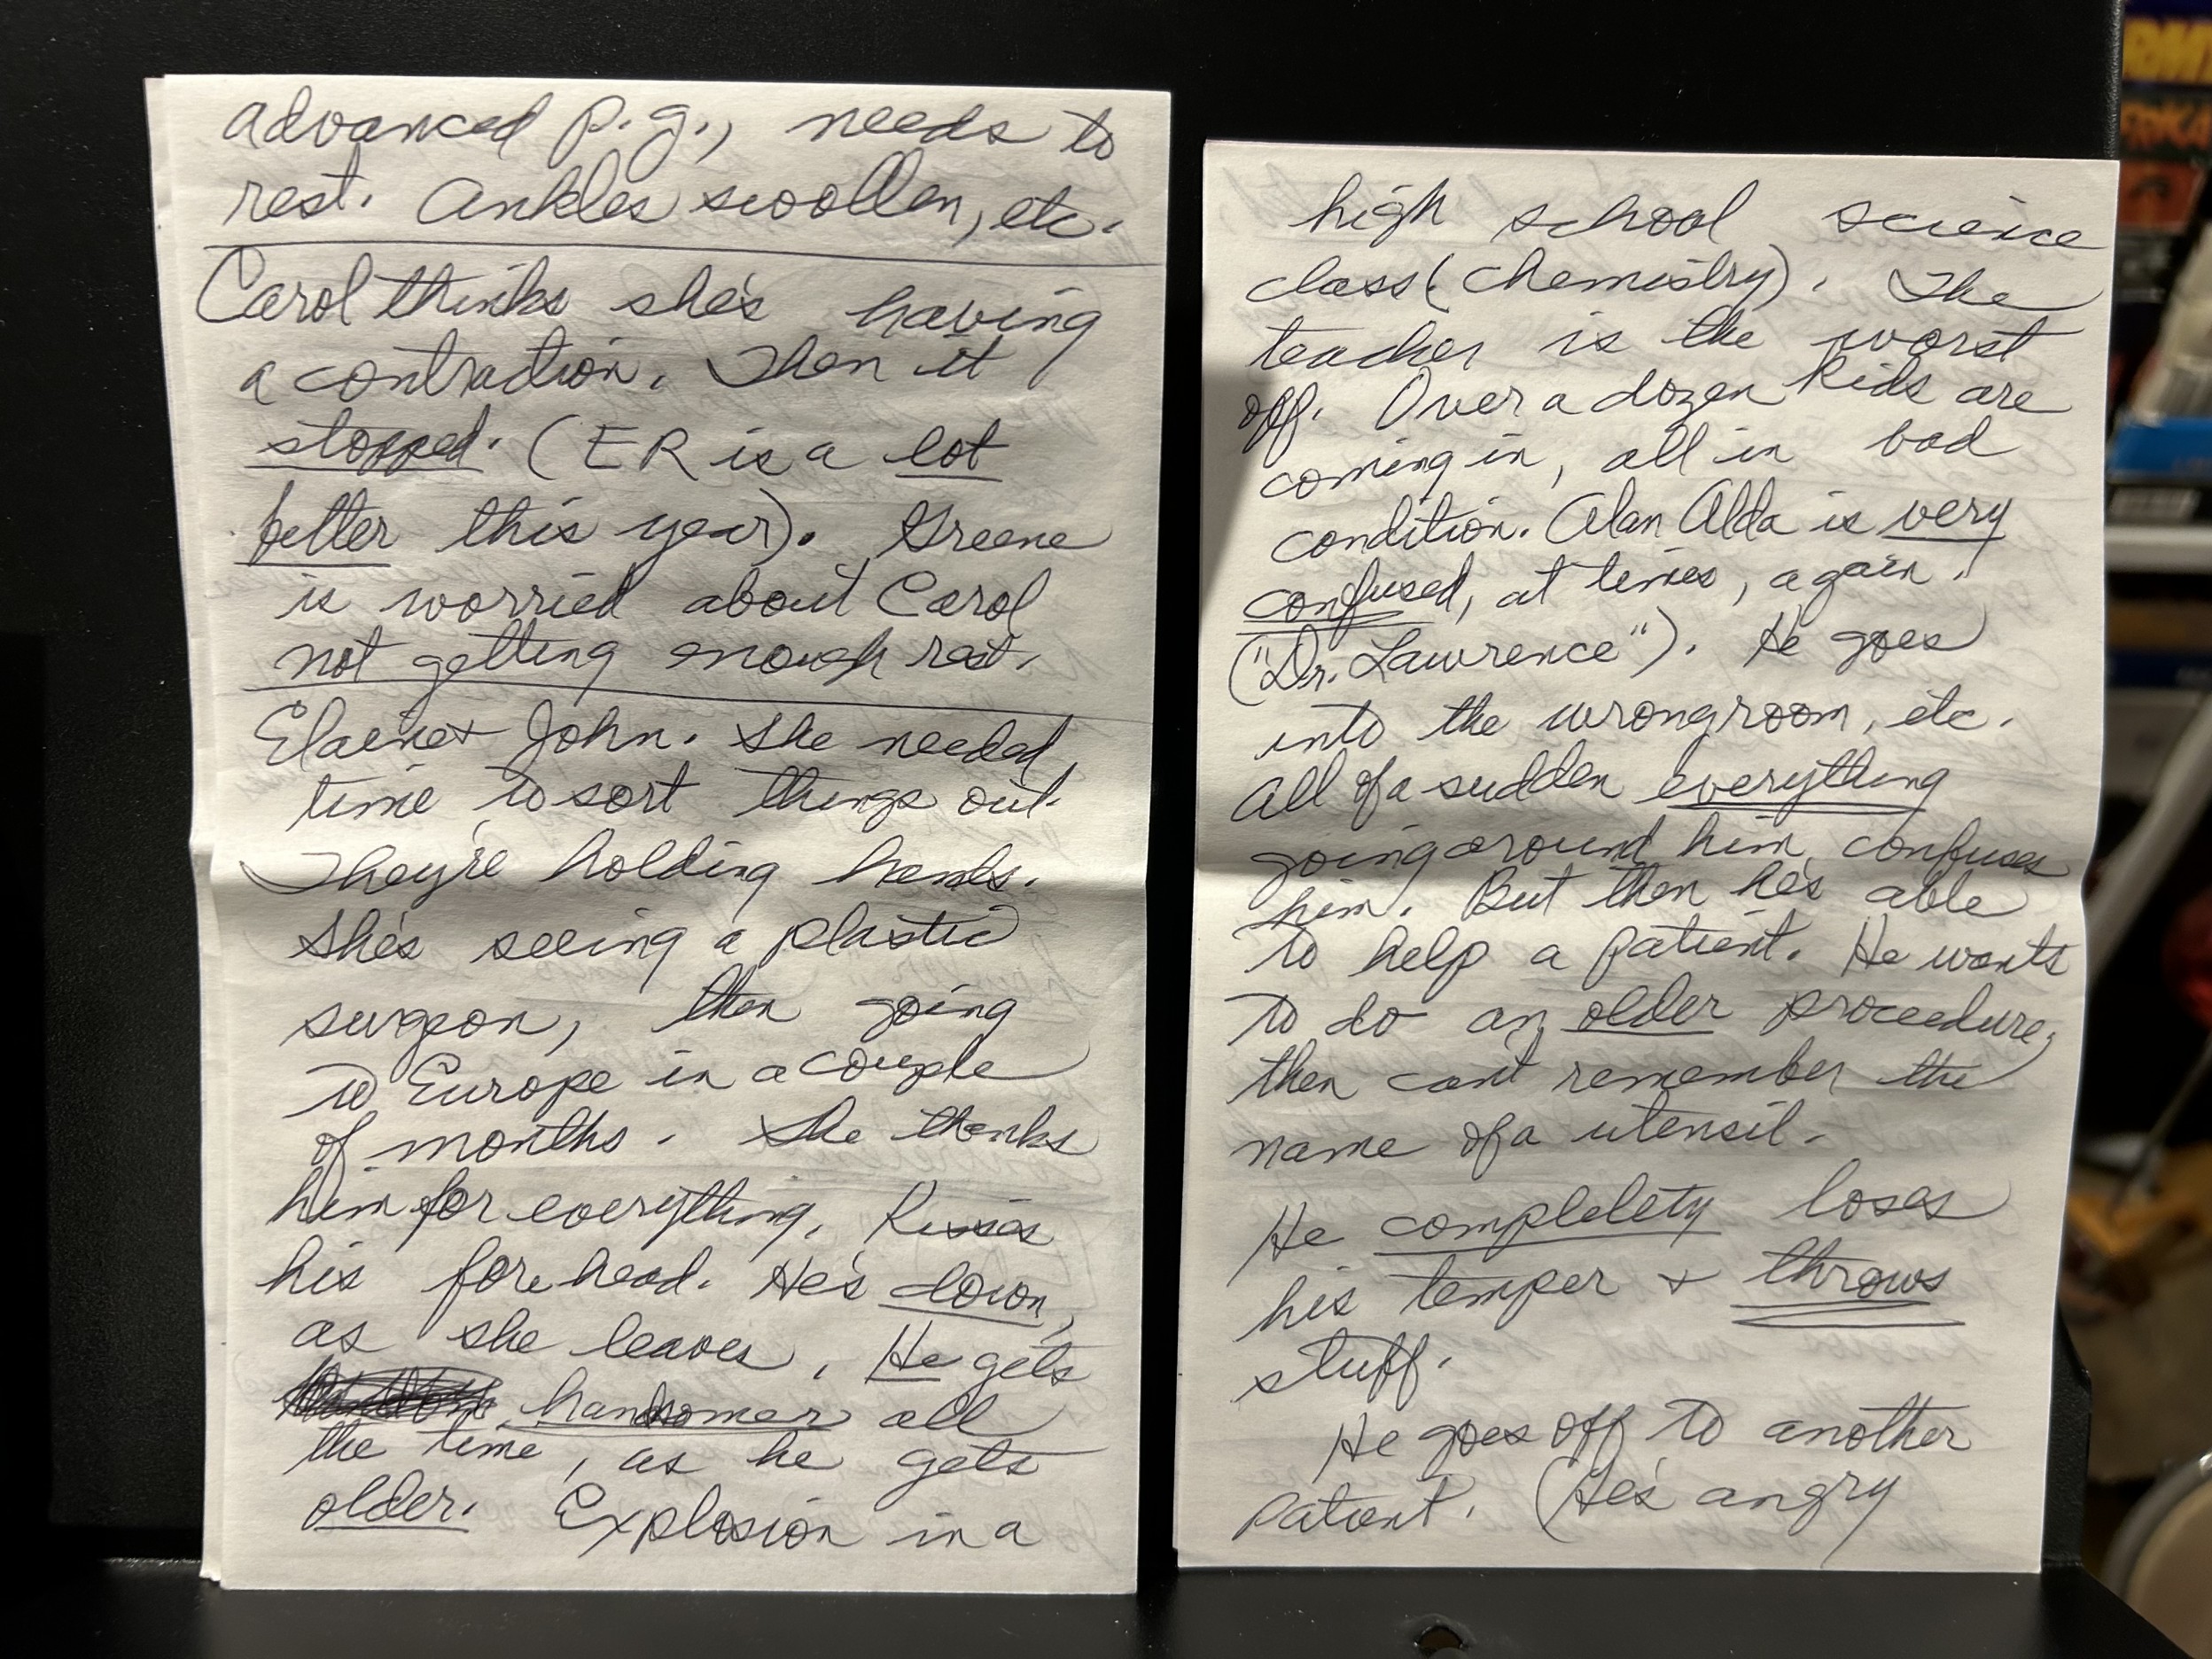 advanced p.g., needs to
rest. Ankles swollen, etc.
Carol thinks she's having
a contraction. Then it
stopped. (ER is a lot
better this year). Greene
is worried about Carol
not getting enough rest.
Elaine + John. She needed
time to sort things out.
They're holding hands.
She's seeing a plastic
surgeon, then going
to Europe in a couple
of months. She thanks
him for everything. Kisses
his forehead. He's down,
as she leaves. He gets
handsomer all
the time, as he gets
older. Explosion in a
high school science
class (chemistry). The
teacher is the worst
off. Over a dozen kids are
coming in, all in bad
condition. Alan Alda is very
confused, at times, again.
("Dr. Lawrence"). He goes
into the wrong room, etc.
All of a sudden everything
going around him confuses
him. But then he's able
to help a patient. He wants
to do an older proceedure,
then can't remember the
name of a utensil.
He completety loses
his temper + throws
stuff.
He goes off to another
patient. (He's angry